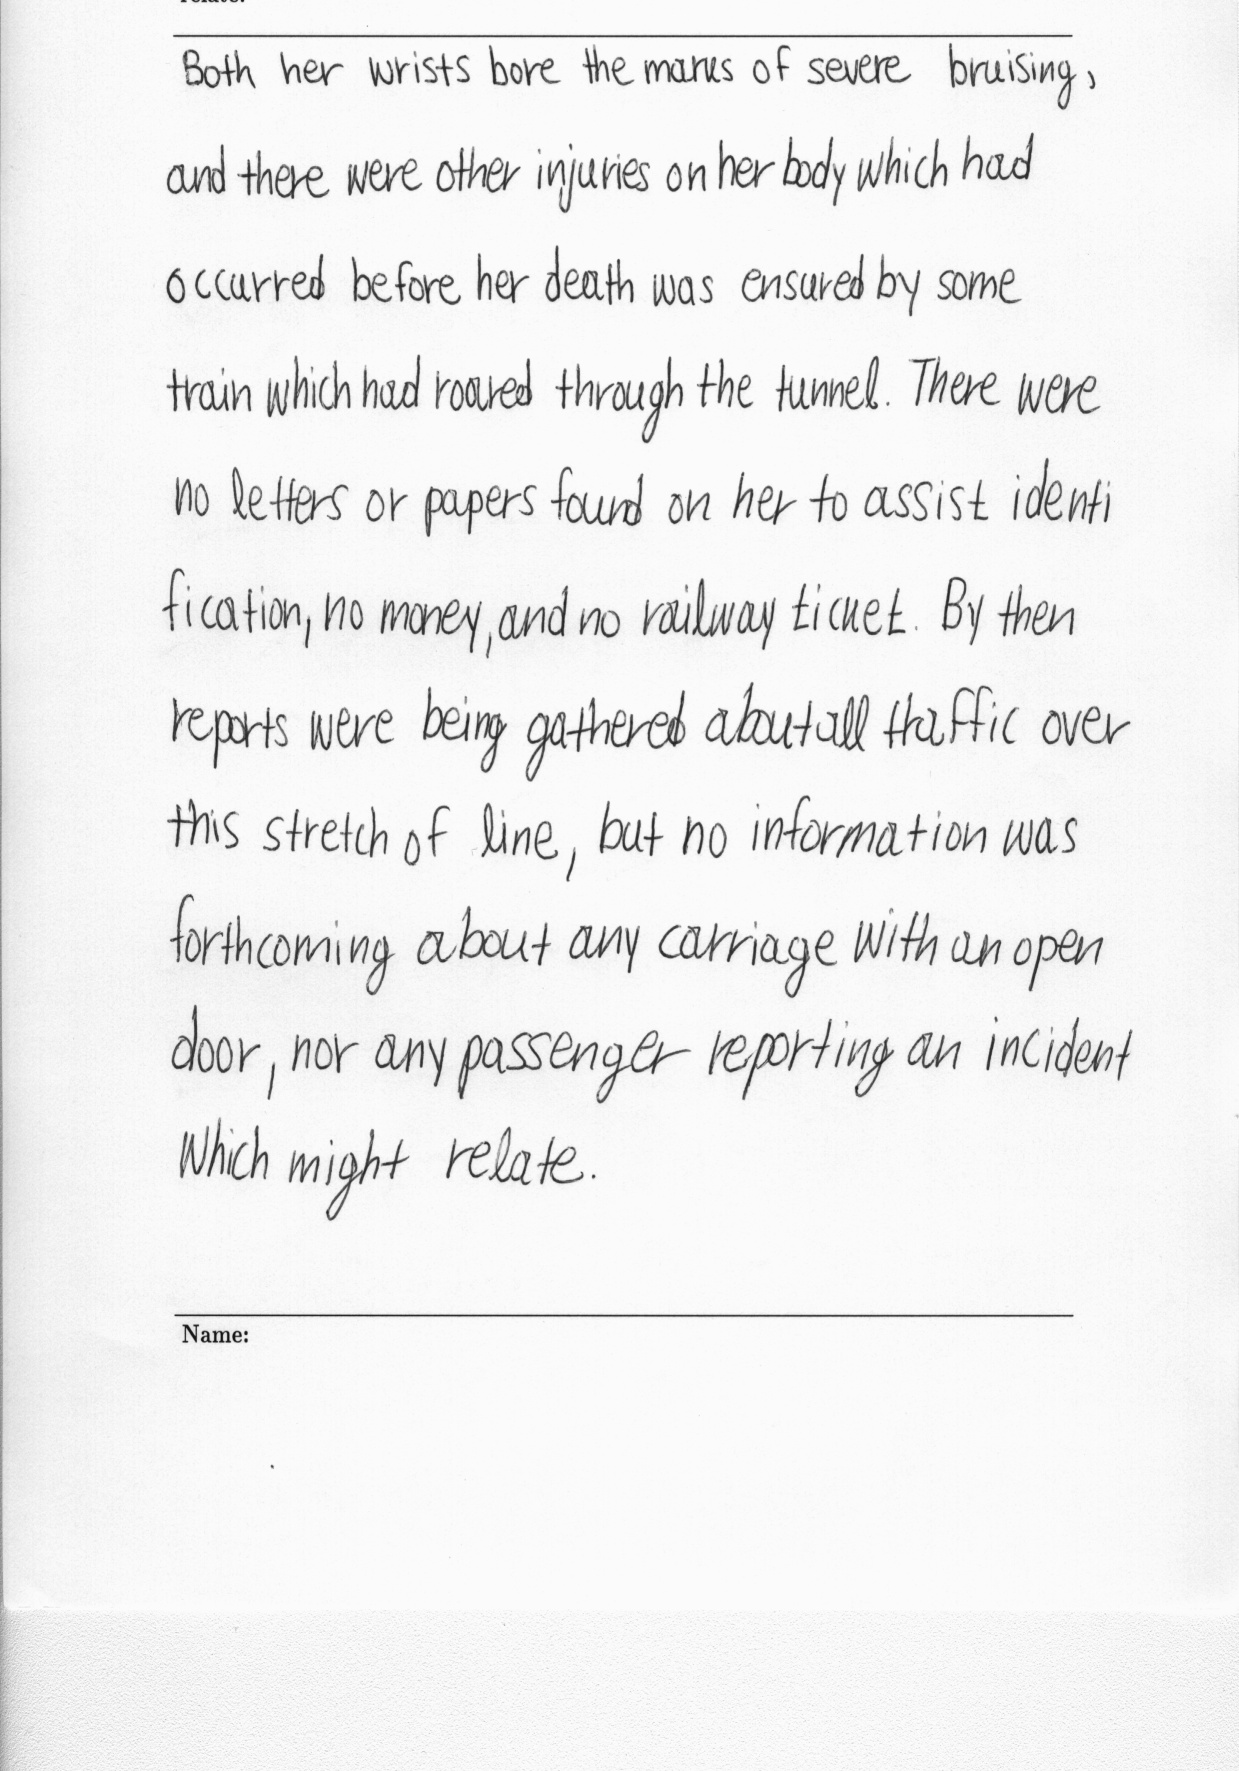 relate.
Both her wrists bore the marks of severe bruising,
and there were other injuries on her body which had
occurred before her death was ensured by some
train which had roared through the tunnel. There were
no letters or papers found on her to assist identi
fication, no money, and no railway ticket. By then
reports were being gathered about all traffic over
this stretch of line, but no information was
forthcoming about any carriage with an open
door, nor any passenger reporting an incident
Which might relate.
Name: